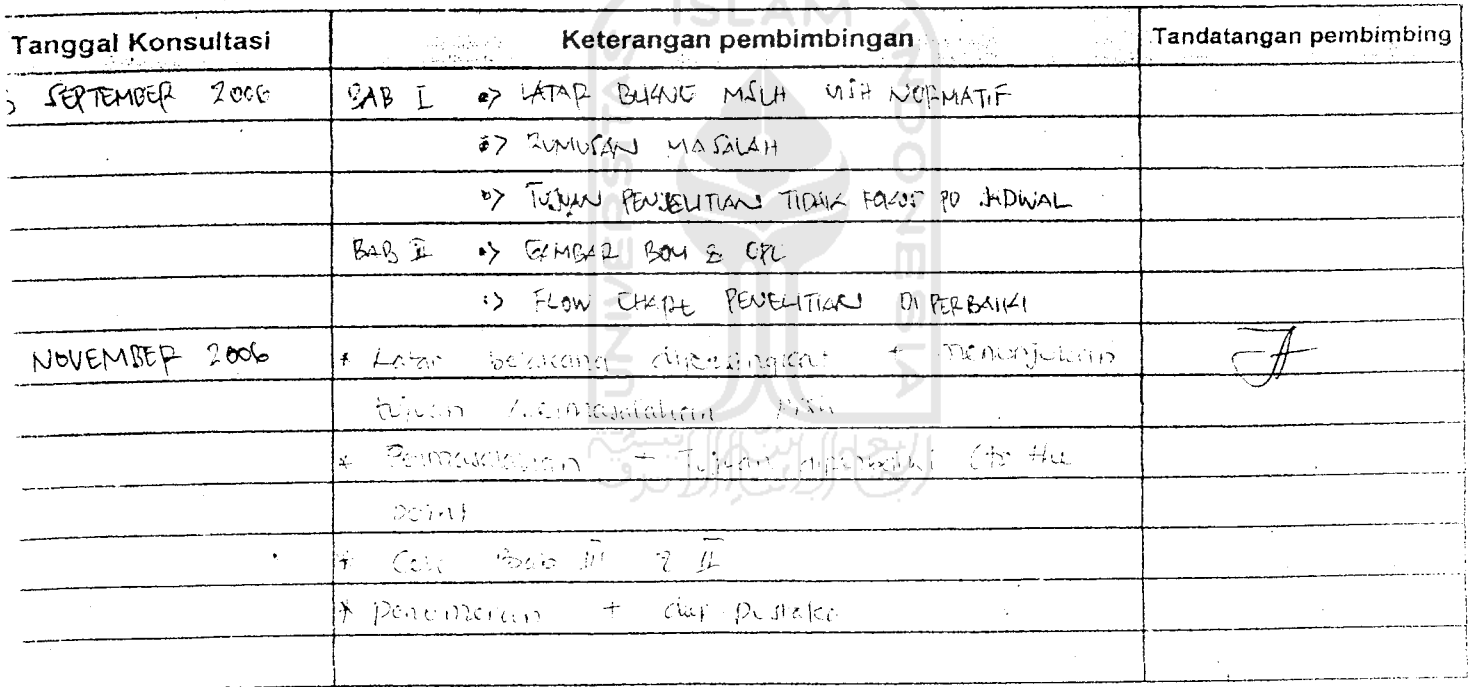 ISLAM
UNIVERSITAS
INDONESIA
Tanggal Konsultasi Keterangan pembimbingan Tandatangan pembimbing
SEPTEMBER 2006 BAB I LATAR NORMATIF
RUMUSAN MASALAH
TUJUAN PENELITIAN TIDAK FOKUS PD JADWAL
BAB II GAMBAR BOM & OPC
FLOW CHART PENELITIAN DIPERBAIKI
NOVEMBER 2006 * Latar belakang + menunjukan
tujuan
* Permasalahan + Tujuan diperbaiki (to the
point)
* Bab III & II
* Penomeran + daf pustaka